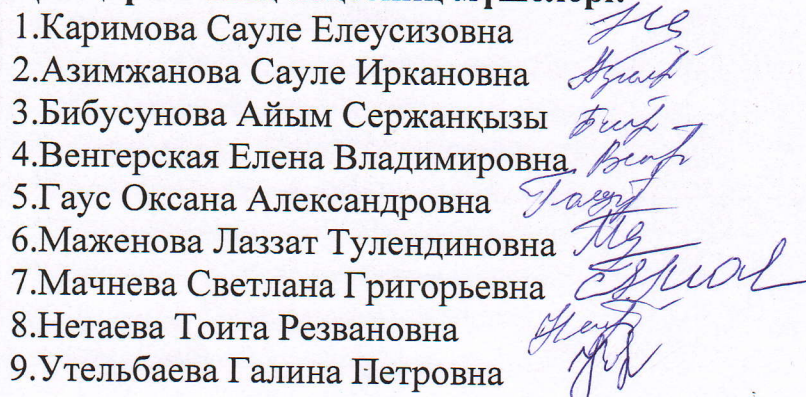 мүшелері:
1.Каримова Сауле Елеусизовна
2.Азимжанова Сауле Иркановна
3.Бибусунова Айым Сержанқызы
4.Венгерская Елена Владимировна
5.Гаус Оксана Александровна
6.Маженова Лаззат Тулендиновна
7.Мачнева Светлана Григорьевна
8.Нетаева Тоита Резвановна
9.Утельбаева Галина Петровна